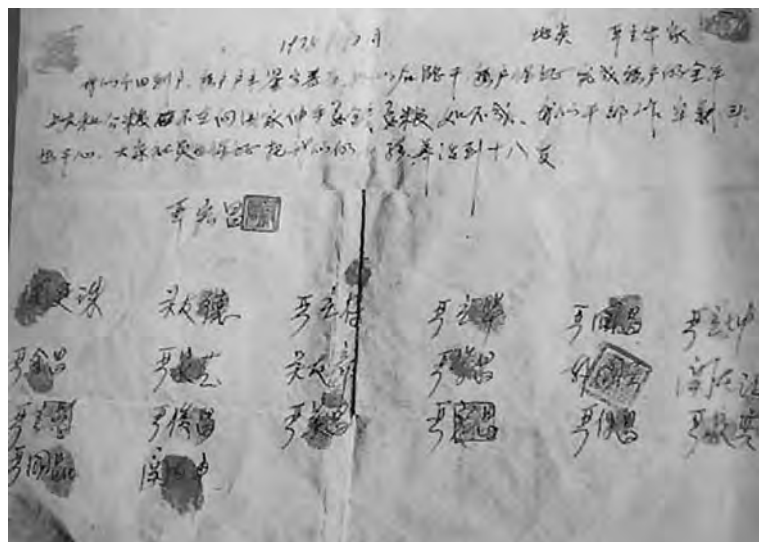 1978 12月 地点 严立华家
我们分田到户,每户户主签字盖章,如以后能干,每户保证完成每户的全年
上交和公粮,不在向国家伸手要钱要粮,如不成,我们干部作牢杀头
也干心,大家社员也保证把我们的小孩养活到十八岁
严宏昌
珠 关友德 严立符 严立华 严国昌 严立坤
严金昌 严家芝 关友章 严学昌 韩国云 关友江
严立学 严俊昌 严美昌 严宏昌 严付昌 严家其
严国品 关友申